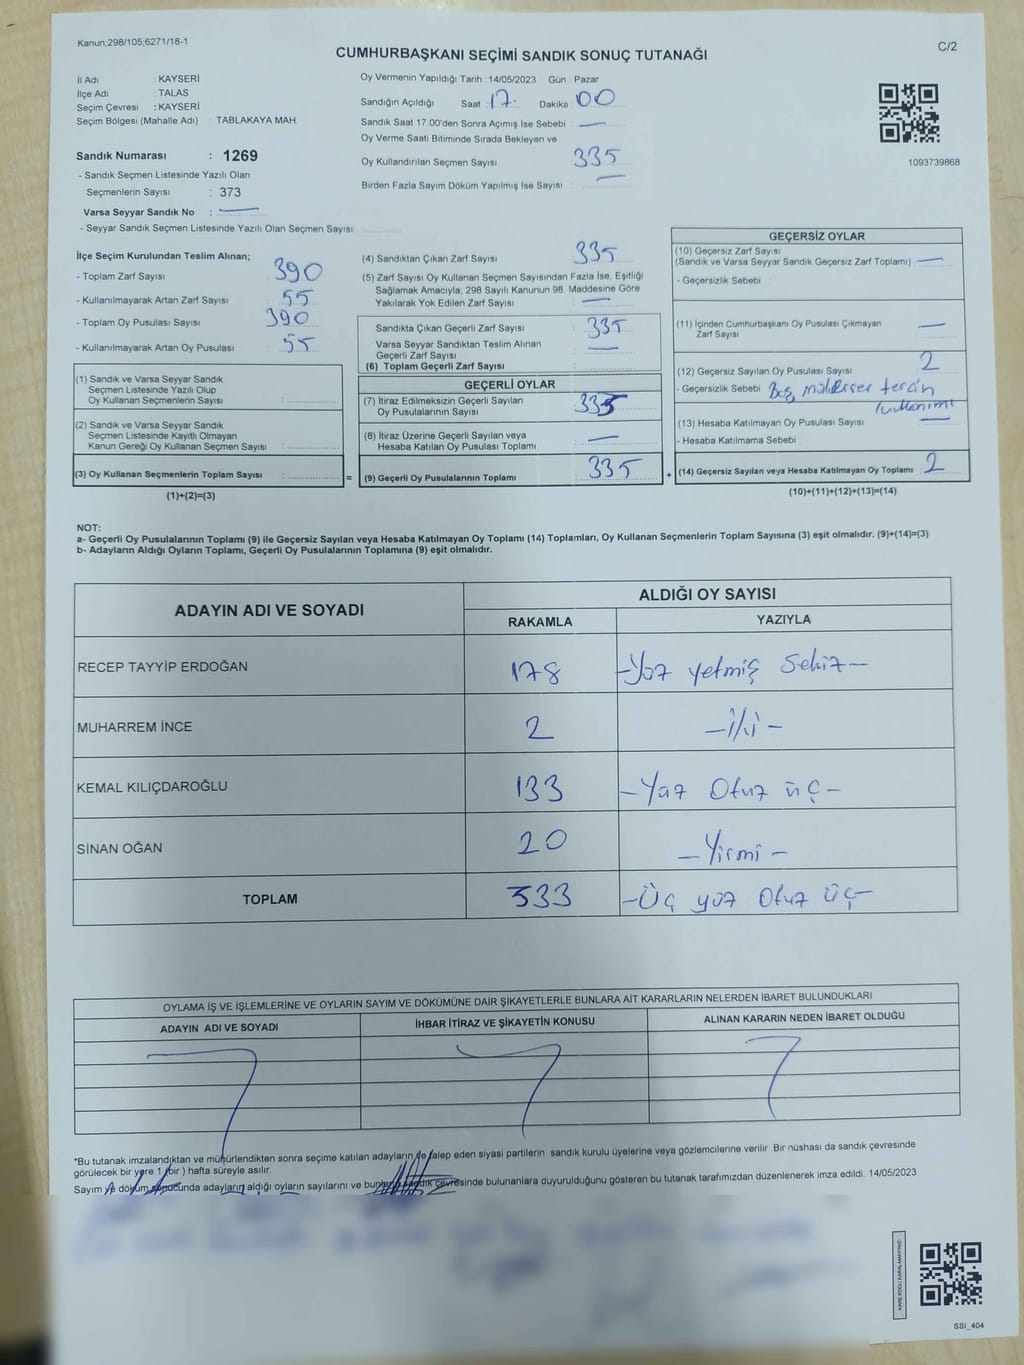 Kanun;298/105;6271/18-1
C/2
CUMHURBAŞKANI SEÇİMİ SANDIK SONUÇ TUTANAĞI
İl Adı : KAYSERİ
İlçe Adı : TALAS
Seçim Çevresi : KAYSERİ
Seçim Bölgesi (Mahalle Adı) : TABLAKAYA MAH.
Sandık Numarası : 1269
- Sandık Seçmen Listesinde Yazılı Olan
Seçmenlerin Sayısı : 373
Varsa Seyyar Sandık No : —
- Seyyar Sandık Seçmen Listesinde Yazılı Olan Seçmen Sayısı:
Oy Vermenin Yapıldığı Tarih :14/05/2023 Gün : Pazar
Sandığın Açıldığı Saat : 17 Dakika : 00
Sandık Saat 17.00'den Sonra Açımış İse Sebebi : —
Oy Verme Saati Bitiminde Sırada Bekleyen ve
Oy Kullandırılan Seçmen Sayısı 335
Birden Fazla Sayım Döküm Yapılmış İse Sayısı : —
1093739868
İlçe Seçim Kurulundan Teslim Alınan;
- Toplam Zarf Sayısı : 390
- Kullanılmayarak Artan Zarf Sayısı : 55
- Toplam Oy Pusulası Sayısı : 390
- Kullanılmayarak Artan Oy Pusulası : 55
(1) Sandık ve Varsa Seyyar Sandık
Seçmen Listesinde Yazılı Olup
Oy Kullanan Seçmenlerin Sayısı :
(2) Sandık ve Varsa Seyyar Sandık
Seçmen Listesinde Kayıtlı Olmayan
Kanun Gereği Oy Kullanan Seçmen Sayısı :
(3) Oy Kullanan Seçmenlerin Toplam Sayısı :
(1)+(2)=(3)
(4) Sandıktan Çıkan Zarf Sayısı : 335
(5) Zarf Sayısı Oy Kullanan Seçmen Sayısından Fazla İse, Eşitliği
Sağlamak Amacıyla; 298 Sayılı Kanunun 98. Maddesine Göre
Yakılarak Yok Edilen Zarf Sayısı : —
Sandıkta Çıkan Geçerli Zarf Sayısı : 335
Varsa Seyyar Sandıktan Teslim Alınan
Geçerli Zarf Sayısı : —
(6) Toplam Geçerli Zarf Sayısı :
GEÇERLİ OYLAR
(7) İtiraz Edilmeksizin Geçerli Sayılan
Oy Pusulalarının Sayısı : 335
(8) İtiraz Üzerine Geçerli Sayılan veya
Hesaba Katılan Oy Pusulası Toplamı : —
= (9) Geçerli Oy Pusulalarının Toplamı : 335 +
GEÇERSİZ OYLAR
(10) Geçersiz Zarf Sayısı
(Sandık ve Varsa Seyyar Sandık Geçersiz Zarf Toplamı) : —
- Geçersizlik Sebebi :
(11) İçinden Cumhurbaşkanı Oy Pusulası Çıkmayan
Zarf Sayısı : —
(12) Geçersiz Sayılan Oy Pusulası Sayısı : 2
- Geçersizlik Sebebi : Boş, tercih
kullanımı
(13) Hesaba Katılmayan Oy Pusulası Sayısı : —
- Hesaba Katılmama Sebebi :
(14) Geçersiz Sayılan veya Hesaba Katılmayan Oy Toplamı : 2
(10)+(11)+(12)+(13)=(14)
NOT:
a- Geçerli Oy Pusulalarının Toplamı (9) ile Geçersiz Sayılan veya Hesaba Katılmayan Oy Toplamı (14) Toplamları, Oy Kullanan Seçmenlerin Toplam Sayısına (3) eşit olmalıdır. (9)+(14)=(3)
b- Adayların Aldığı Oyların Toplamı, Geçerli Oy Pusulalarının Toplamına (9) eşit olmalıdır.
ADAYIN ADI VE SOYADI ALDIĞI OY SAYISI
RAKAMLA YAZIYLA
RECEP TAYYİP ERDOĞAN 178 -Yüz yetmiş sekiz-
MUHARREM İNCE 2 -İki-
KEMAL KILIÇDAROĞLU 133 -Yüz Otuz üç-
SİNAN OĞAN 20 -Yirmi-
TOPLAM 333 -Üç yüz Otuz üç-
OYLAMA İŞ VE İŞLEMLERİNE VE OYLARIN SAYIM VE DÖKÜMÜNE DAİR ŞİKAYETLERLE BUNLARA AİT KARARLARIN NELERDEN İBARET BULUNDUKLARI
ADAYIN ADI VE SOYADI İHBAR İTİRAZ VE ŞİKAYETİN KONUSU ALINAN KARARIN NEDEN İBARET OLDUĞU
*Bu tutanak imzalandıktan ve mühürlendikten sonra seçime katılan adayların,ve talep eden siyasi partilerin sandık kurulu üyelerine veya gözlemcilerine verilir. Bir nüshası da sandık çevresinde
görülecek bir yere 1 (bir ) hafta süreyle asılır.
Sayım ve döküm sonucunda adayların aldığı oyların sayılarını ve bunların sandık çevresinde bulunanlara duyurulduğunu gösteren bu tutanak tarafımızdan düzenlenerek imza edildi. 14/05/2023
KARE KODU KARALAMAYINIZ!
SSI_404